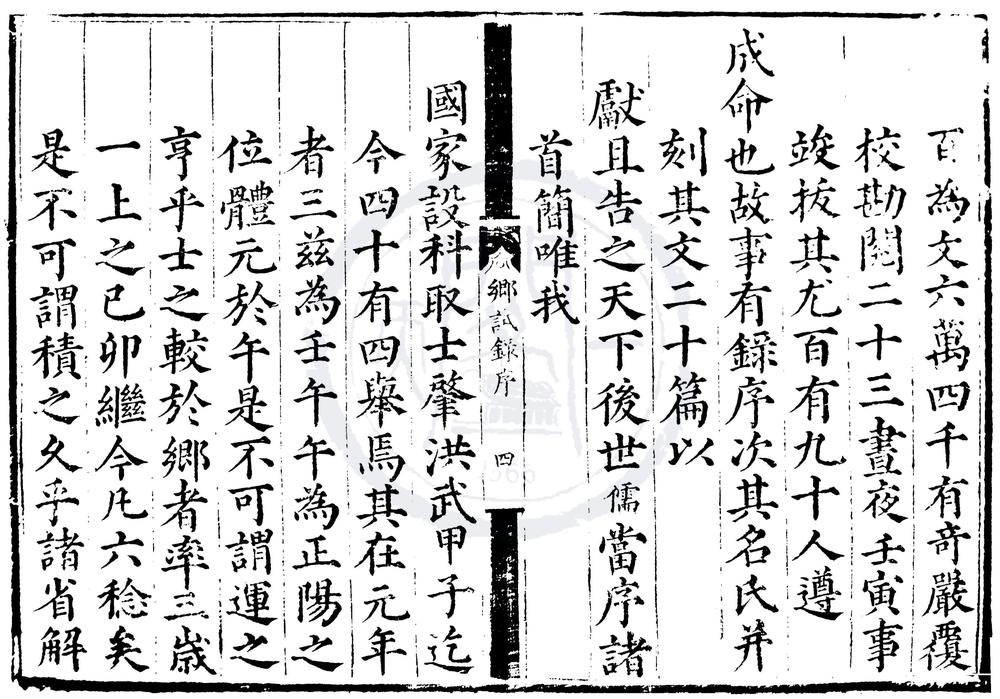 百為文六萬四千有奇嚴覆
校勘閱二十三晝夜壬寅事
竣拔其尤百有九十人遵
成命也故事有錄序次其名氏并
刻其文二十篇以
獻且告之天下後世儒當序諸
首簡唯我
鄉試錄序
四
國家設科取士肇洪武甲子迄
今四十有四舉焉其在元年
者三茲為壬午午為正陽之
位體元於午是不可謂運之
亨乎士之較於鄉者率三歲
一上之已卯繼今凡六稔矣
是不可謂積之久乎諸省解